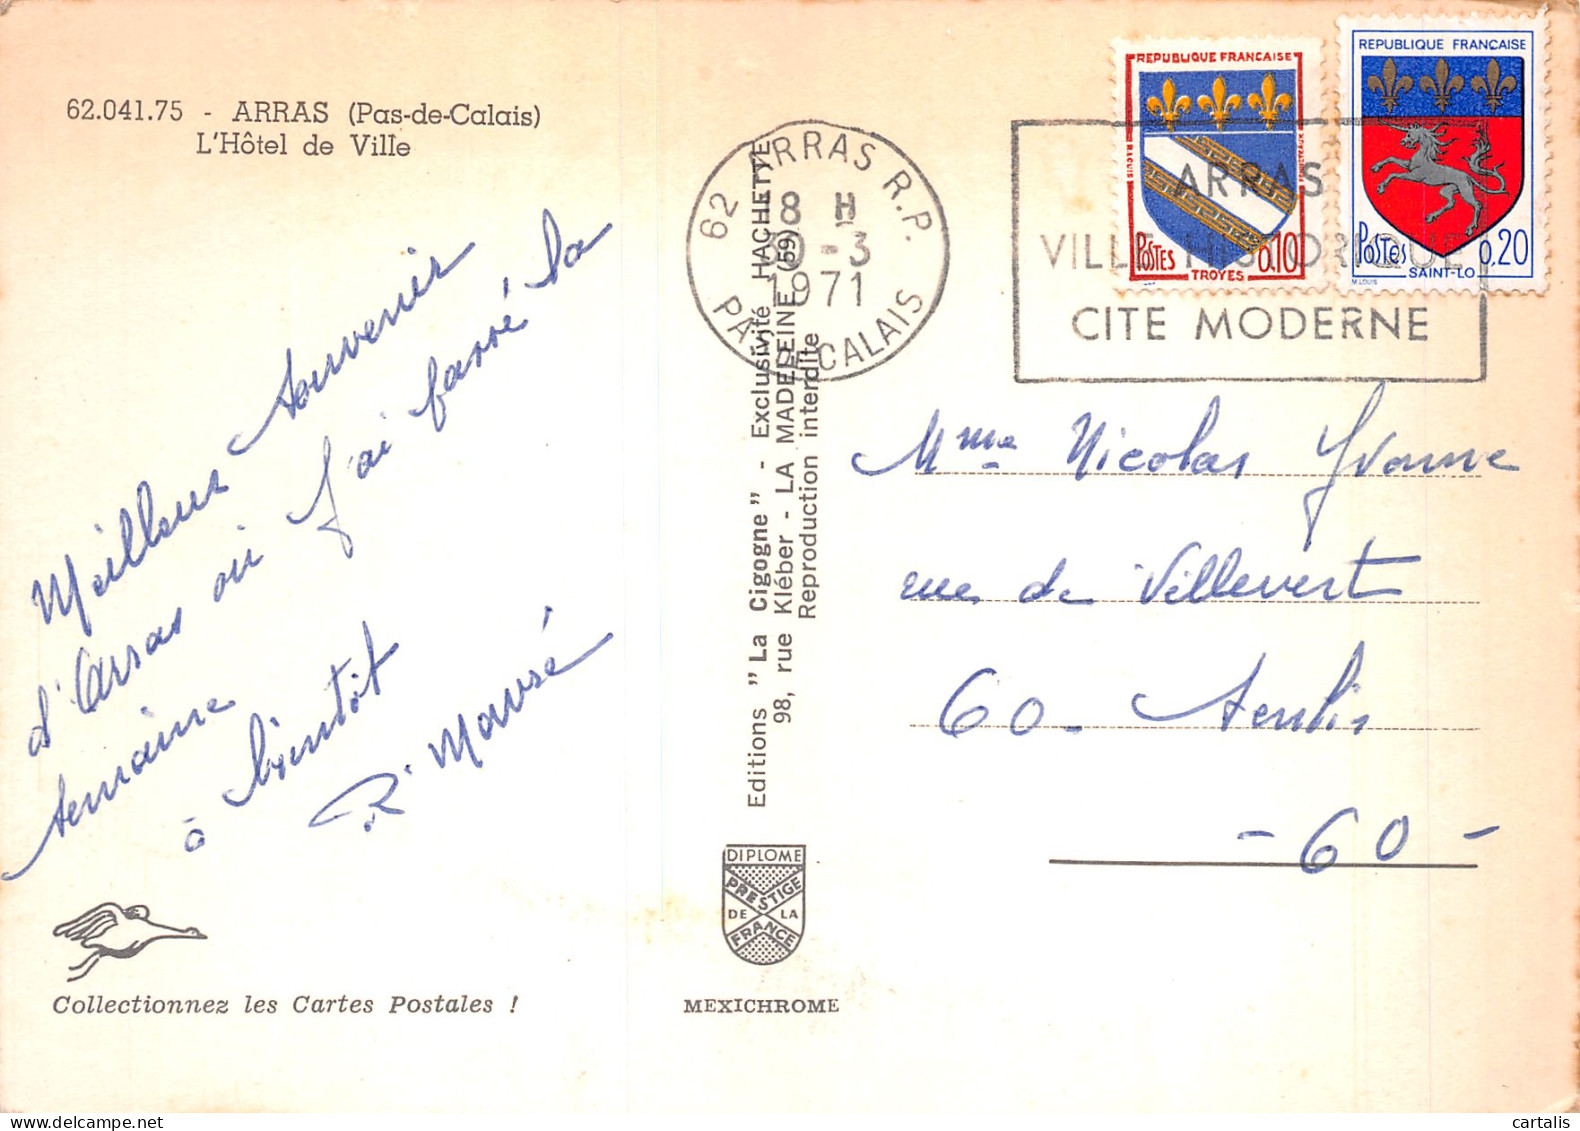 62.041.75 - ARRAS (Pas-de-Calais)
L'Hôtel de Ville
Meilleur souvenir
d'Arras où j'ai passé la
semaine
à bientôt
R. Mansé
Collectionnez les Cartes Postales !
Editions "La Cigogne" - Exclusivité HACHETTE
98, rue Kléber - LA MADELEINE (59)
Reproduction interdite
DIPLOME
PRESTIGE
DE LA
FRANCE
MEXICHROME
62 ARRAS R.P.
18 H
30-3
1971
PAS DE CALAIS
ARRAS
VILLE HISTORIQUE
CITE MODERNE
REPUBLIQUE FRANÇAISE
POSTES 0,10
TROYES
REPUBLIQUE FRANÇAISE
POSTES 0,20
SAINT-LO
M. LOUIS
Mme Nicolas Yvonne
rue de Villevert
60 - Senlis
- 60 -
cartalis